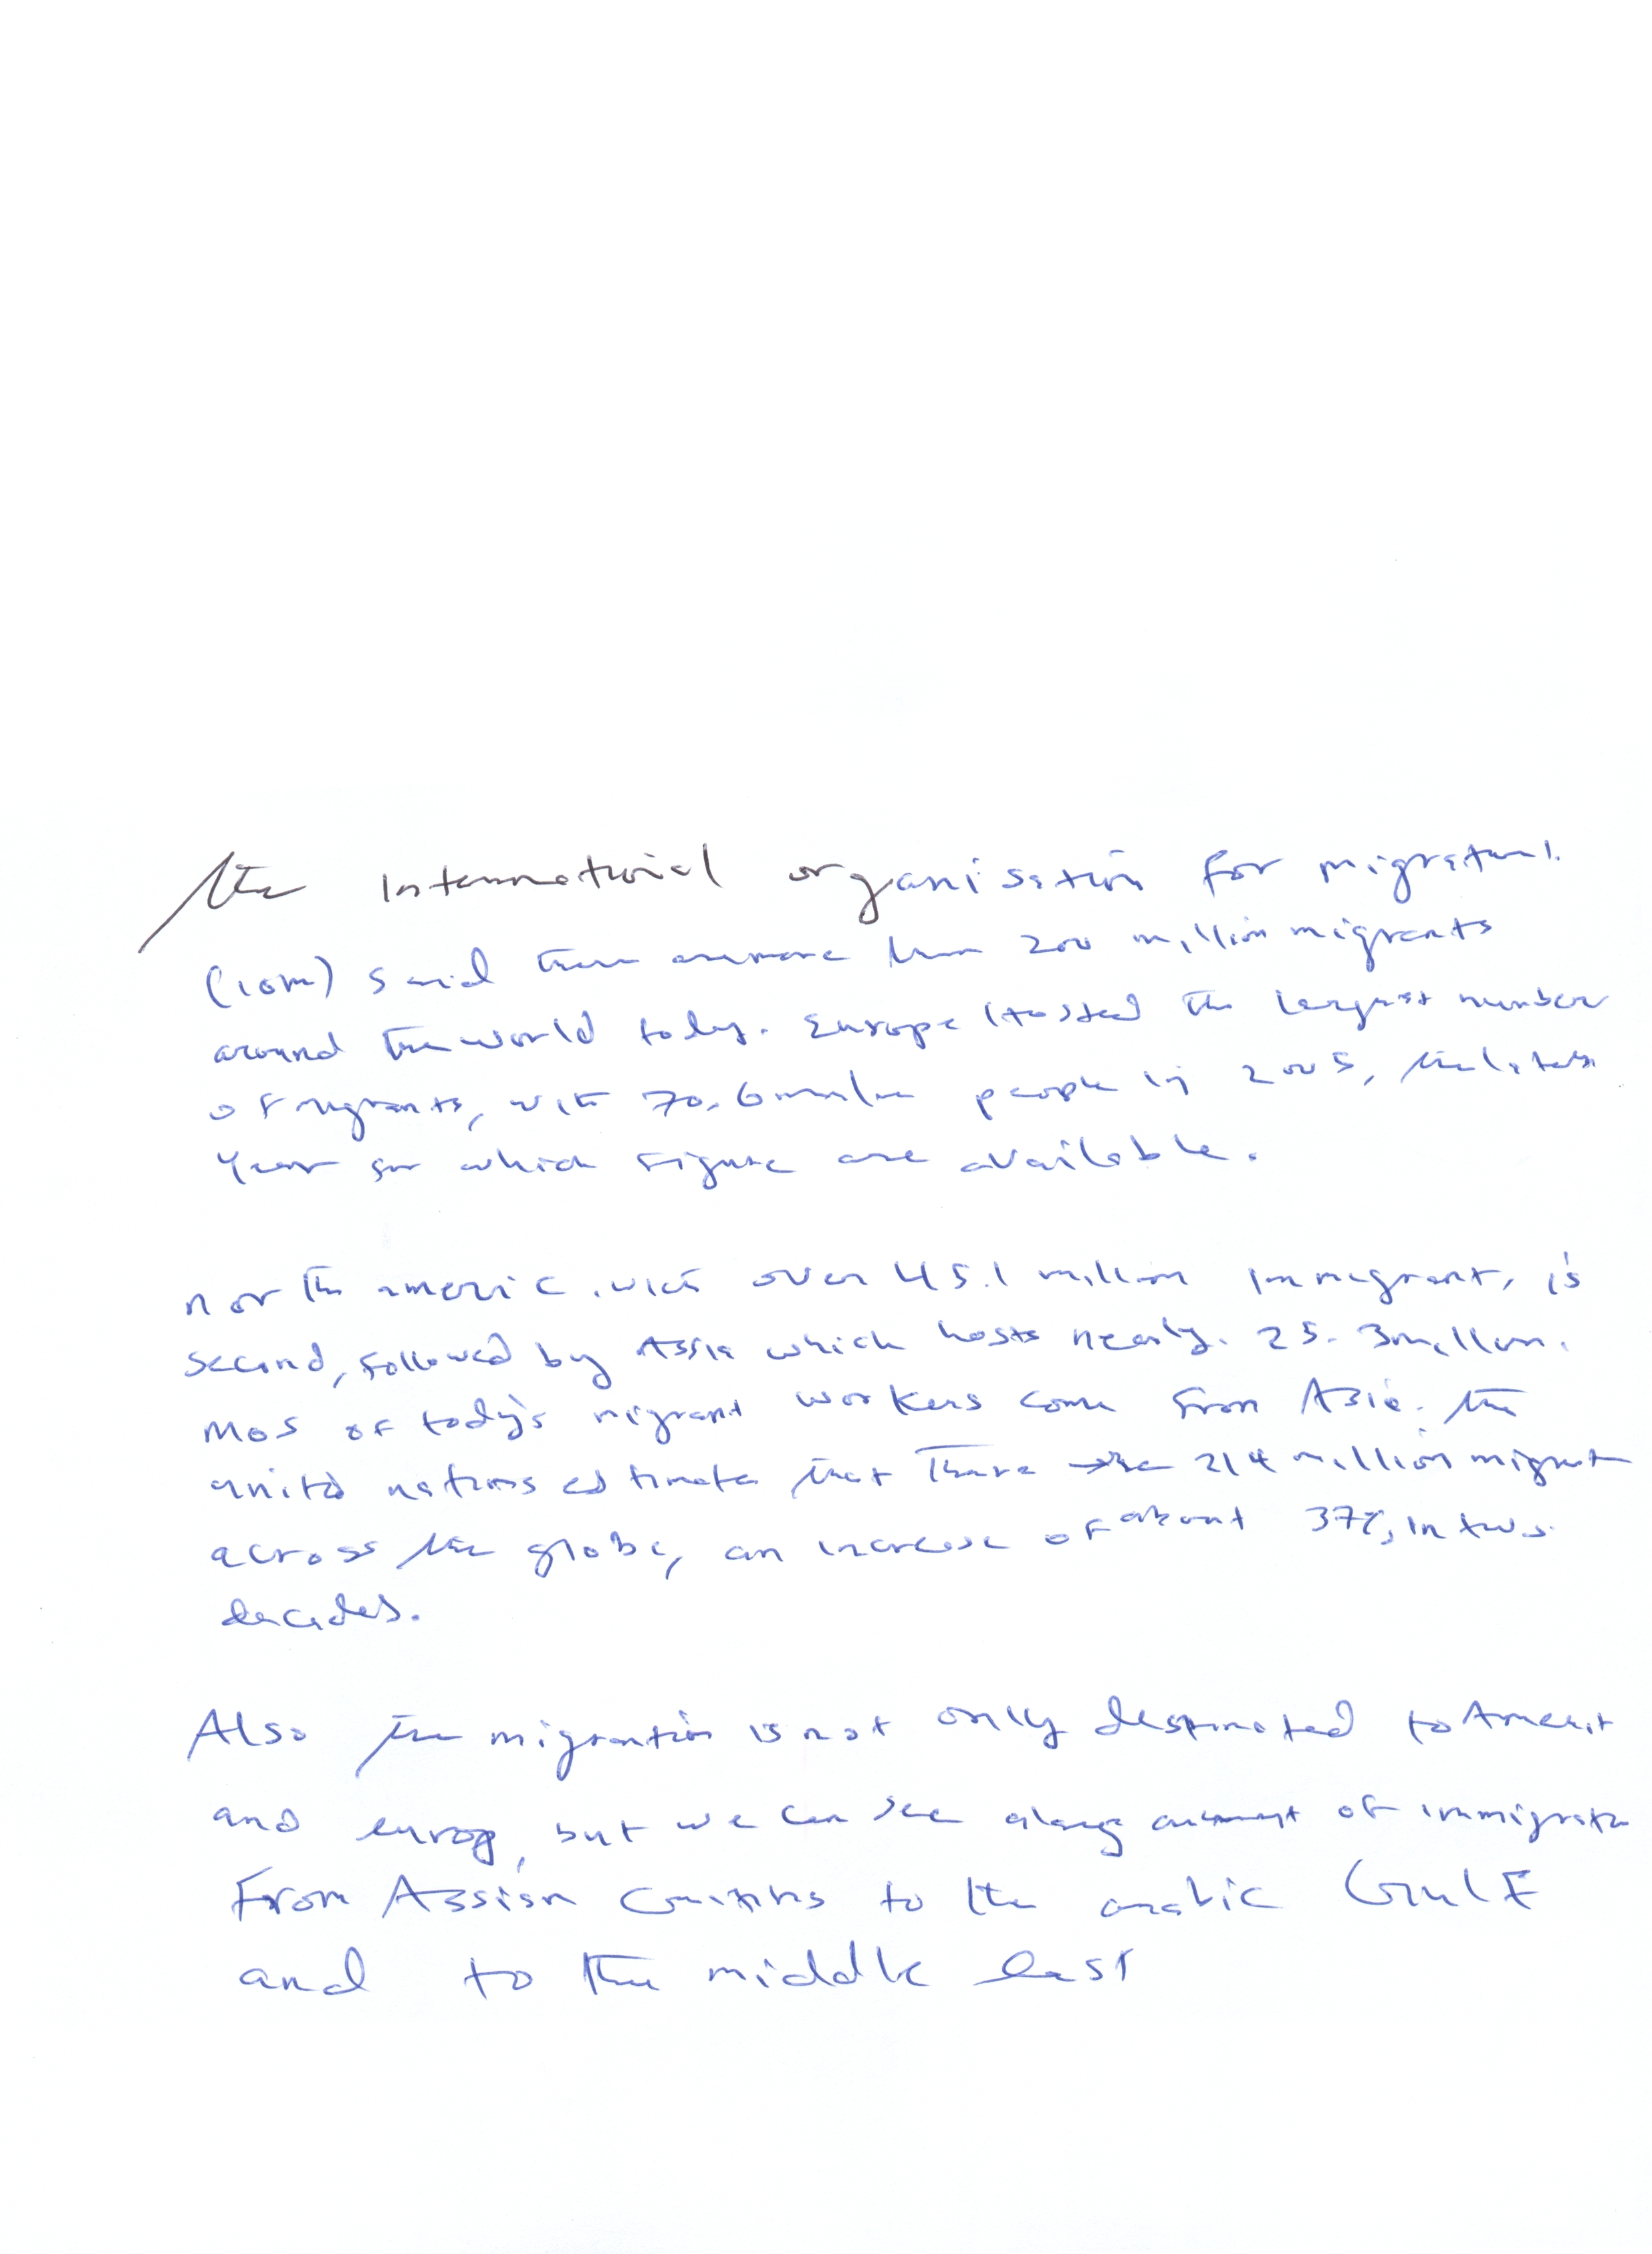 the International organisation for migration.
(iom) said there are more than 200 million migrants
around the world today. Europe hosted the largest number
of migrants, with 70.6 million people in 2005, the latest
Year for which figure are available.
north americ. with over 45.1 million immigrant, is
second, followed by Assia which hosts nearly. 25.3 million.
Mos of tody's migrant workers come from Asia. the
united nations estimate that There are 214 million migrant
across the globe, an increase of about 37%, in two
decades.
Also the migration is not only destinated to Americ
and europ, but we can see alarg amount of immigratio
From Assian Countries to the arabic Gulf
and to the middle east